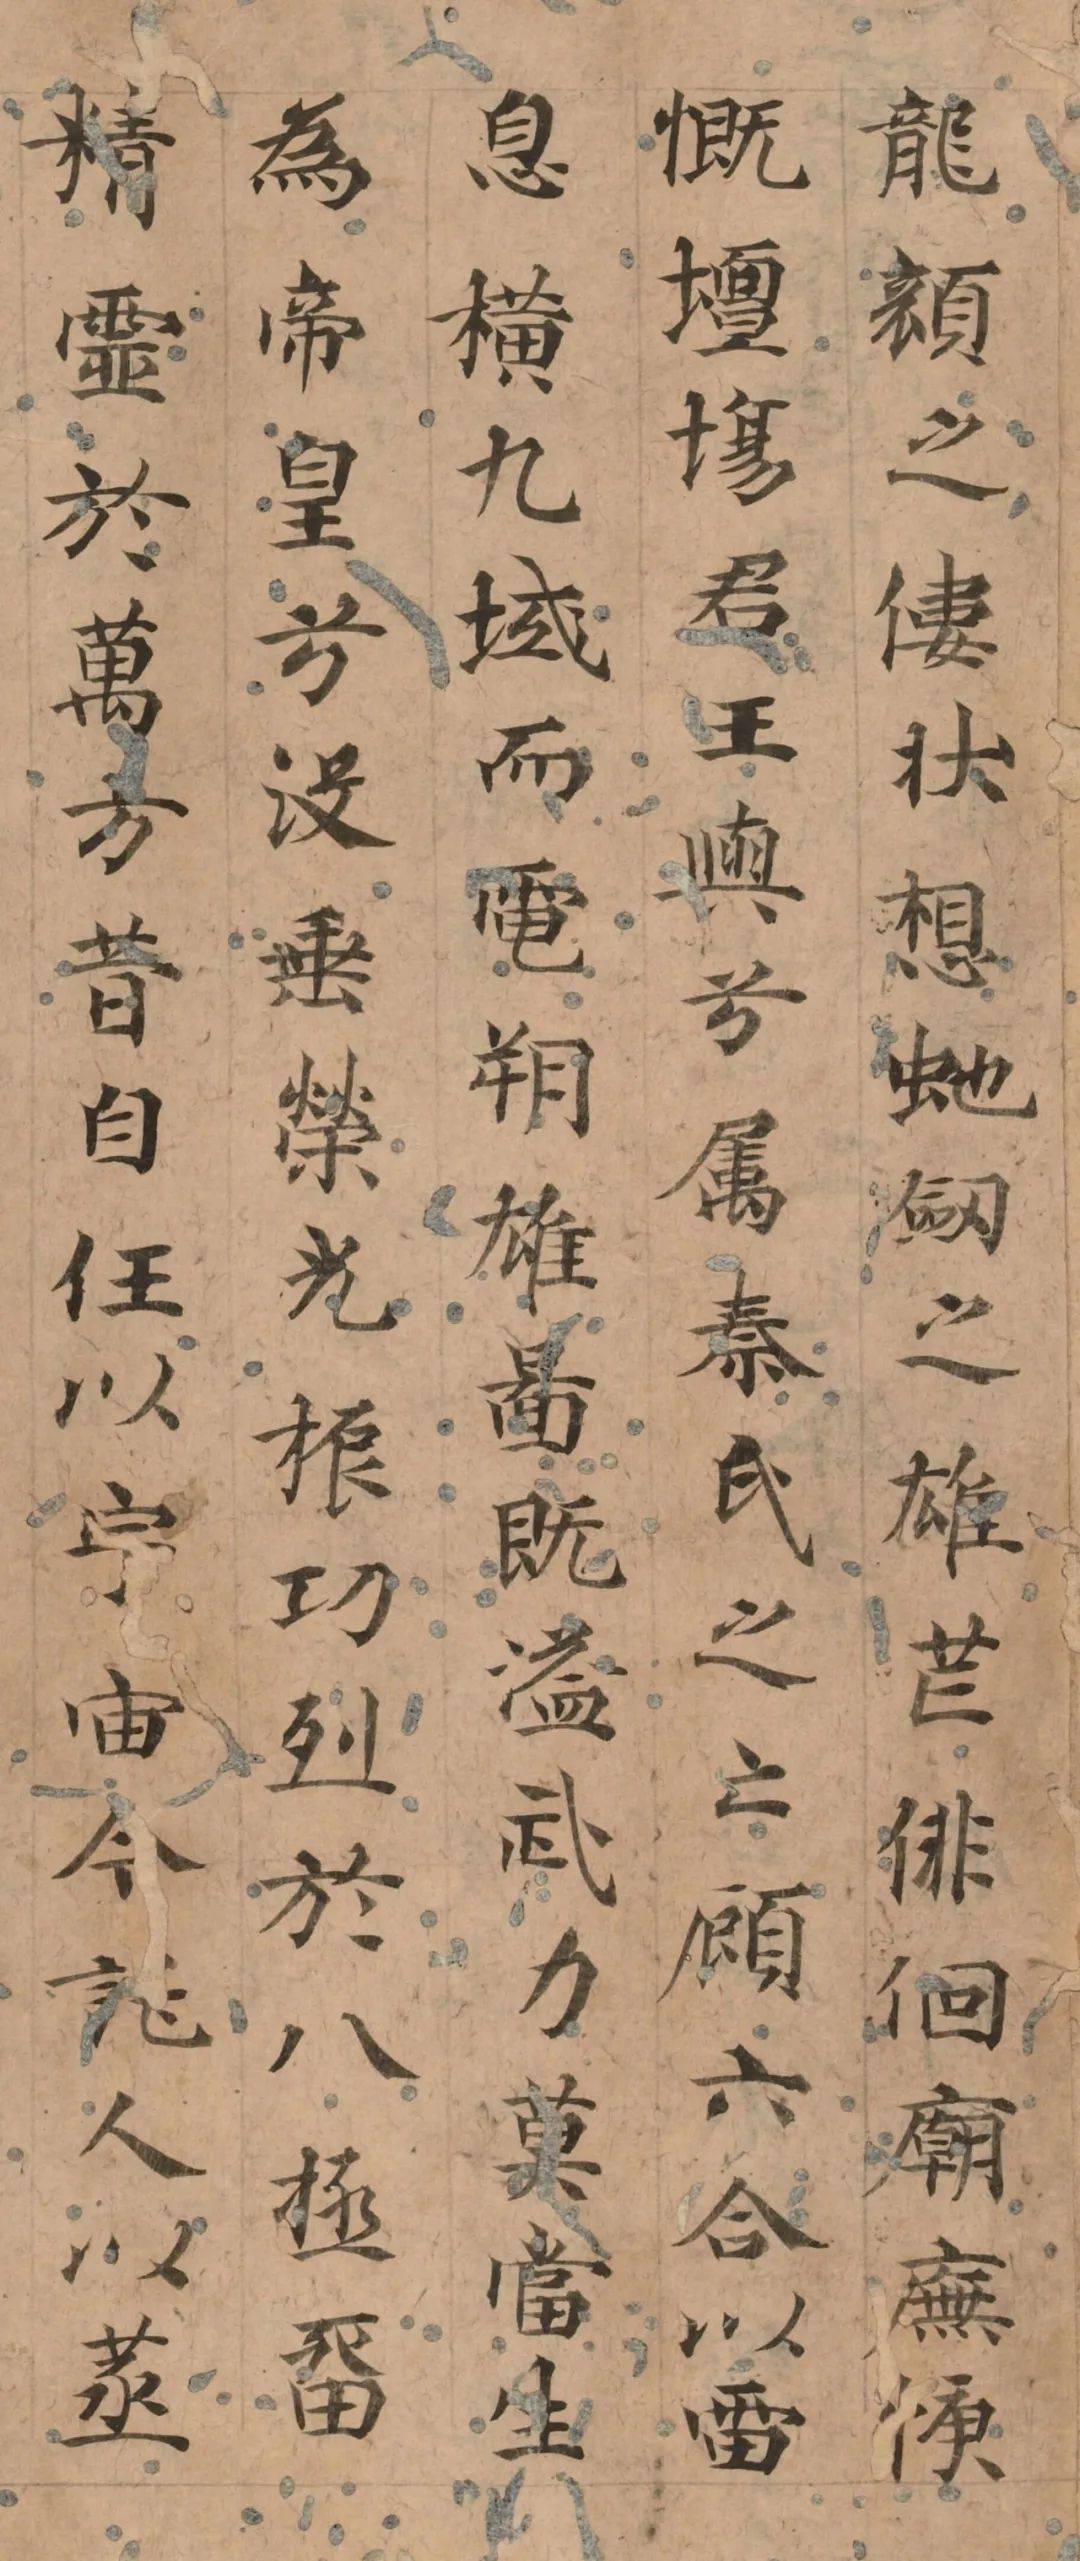 龍顏之僂狀想虵劒之雄芒徘徊廟廡慷
慨壇場君王輿兮属秦氏之亡顧六合以雷
息橫九域而電朔雄啚既溢武力莫當生
為帝皇兮没垂榮光振功烈於八極留
精靈於萬方昔自任以宇宙今託人以蒸